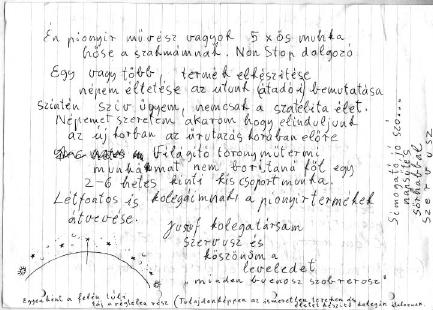 Én pionyir művész vagyok 5 x ős munka
hőse a szakmámnak. Non Stop dolgozó
Egy vagy több termék elkészítése
népem éltetése az utunk (átadói) bemutatása
szintén szív ügyem, nemcsak a szatelita élet.
Népemet szeretem akarom hogy elinduljunk
az új korban az űrutazás korában előre
Világító toronyműtermi
munkámat nem borítaná föl egy
2-6 hetes kinti kiscsoport munka.
Létfontos is kolegáimnak a pionyir termékek
átvevése.
Jusuf kolegatársam
szervusz és
köszönöm a
leveledet
"minden buenosz szobrerosz"
Símogató jó szó....
nagysütés
sörhabbal
szervusz
Egyenként a felén túli
táj a végtelen rész (Tulajdonképpen az ismeretlen tereken át